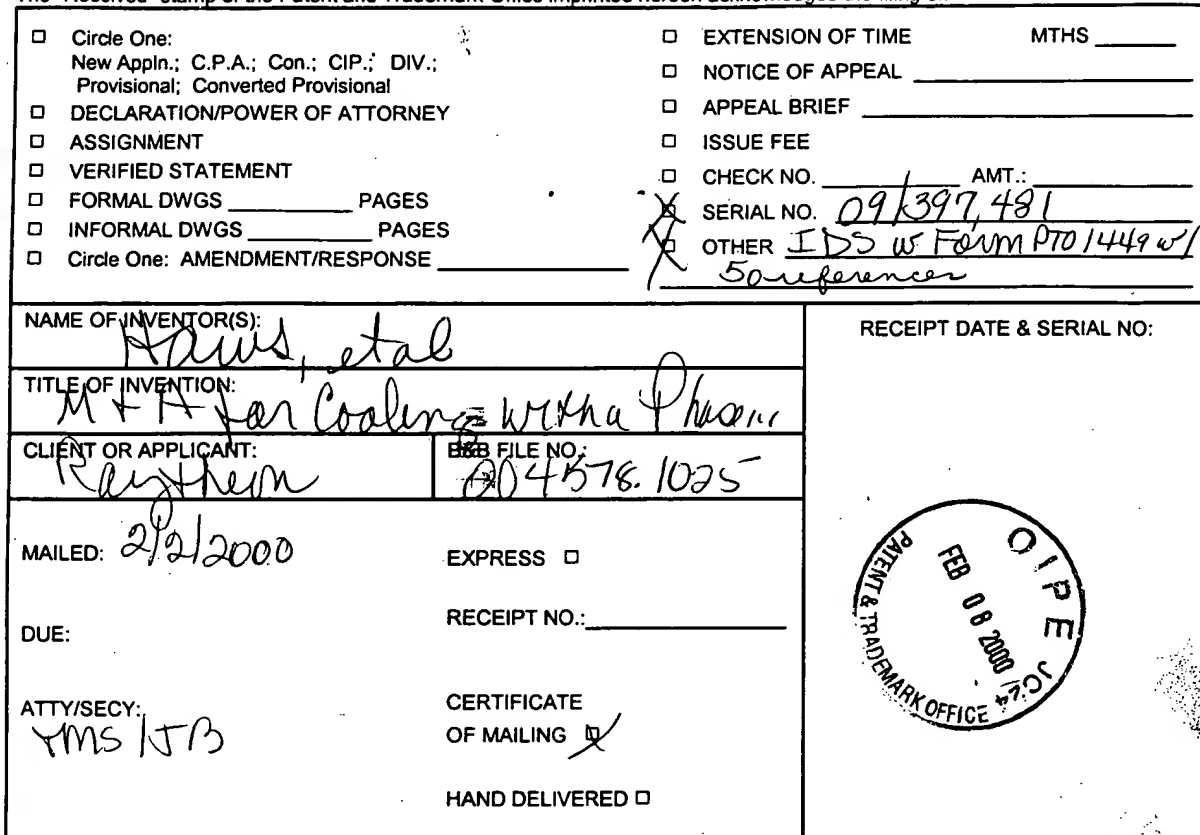 ☐ Circle One:
New Appln.; C.P.A.; Con.; CIP.; DIV.;
Provisional; Converted Provisional
☐ DECLARATION/POWER OF ATTORNEY
☐ ASSIGNMENT
☐ VERIFIED STATEMENT
☐ FORMAL DWGS ________ PAGES
☐ INFORMAL DWGS ________ PAGES
☐ Circle One: AMENDMENT/RESPONSE ________
☐ EXTENSION OF TIME MTHS ________
☐ NOTICE OF APPEAL ________
☐ APPEAL BRIEF ________
☐ ISSUE FEE
☐ CHECK NO. ________ AMT.: ________
☒ SERIAL NO. 09/397,481
☒ OTHER IDS w Form PTO 1449 w/
50 references
NAME OF INVENTOR(S):
Haws, et al
TITLE OF INVENTION:
M + A for Cooling with a Phase...
CLIENT OR APPLICANT:
Raytheon
B&B FILE NO.:
004578.1025
RECEIPT DATE & SERIAL NO:
MAILED: 2/2/2000
EXPRESS ☐
RECEIPT NO.: ________
DUE:
ATTY/SECY:
TMS/JB
CERTIFICATE
OF MAILING ☒
HAND DELIVERED ☐
OIPE JC24
FEB 08 2000
PATENT & TRADEMARK OFFICE